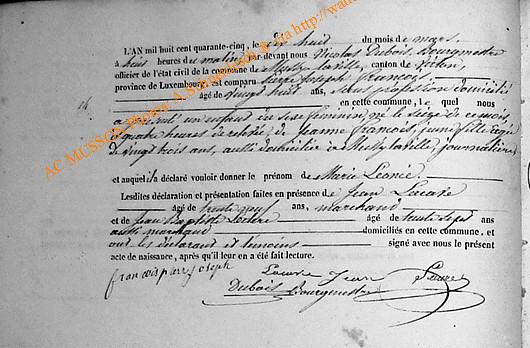 L'AN mil huit cent quarante-cinq, le dix huit du mois de mars
à huit heures du matin, par-devant nous Nicolas Dubois, Bourgmestre
officier de l'état civil de la commune de Mussy la ville, canton de Virton,
province de Luxembourg, est comparu Joseph François,
âgé de vingt huit ans, sans profession domicilié
en cette commune, lequel nous
a présenté un enfant du sexe féminin, né le seize de ce mois,
à quatre heures de relevée, de Jeanne François, âgée
de vingt trois ans, aussi domiciliée à Mussy la ville, journalière
et auquel il a déclaré vouloir donner le prénom de Marie Léonie.
Lesdites déclaration et présentation faites en présence de Jean
âgé de trente neuf ans, marchand
et de Jean Baptiste âgé de trente sept ans
aussi marchand domiciliés en cette commune, et
ont les déclarant et témoins signé avec nous le présent
acte de naissance, après qu'il leur en a été fait lecture.
françois joseph
Jean
Dubois Bourgmestre
AC MUSSON Photos A. Schroeder & sia http://wa